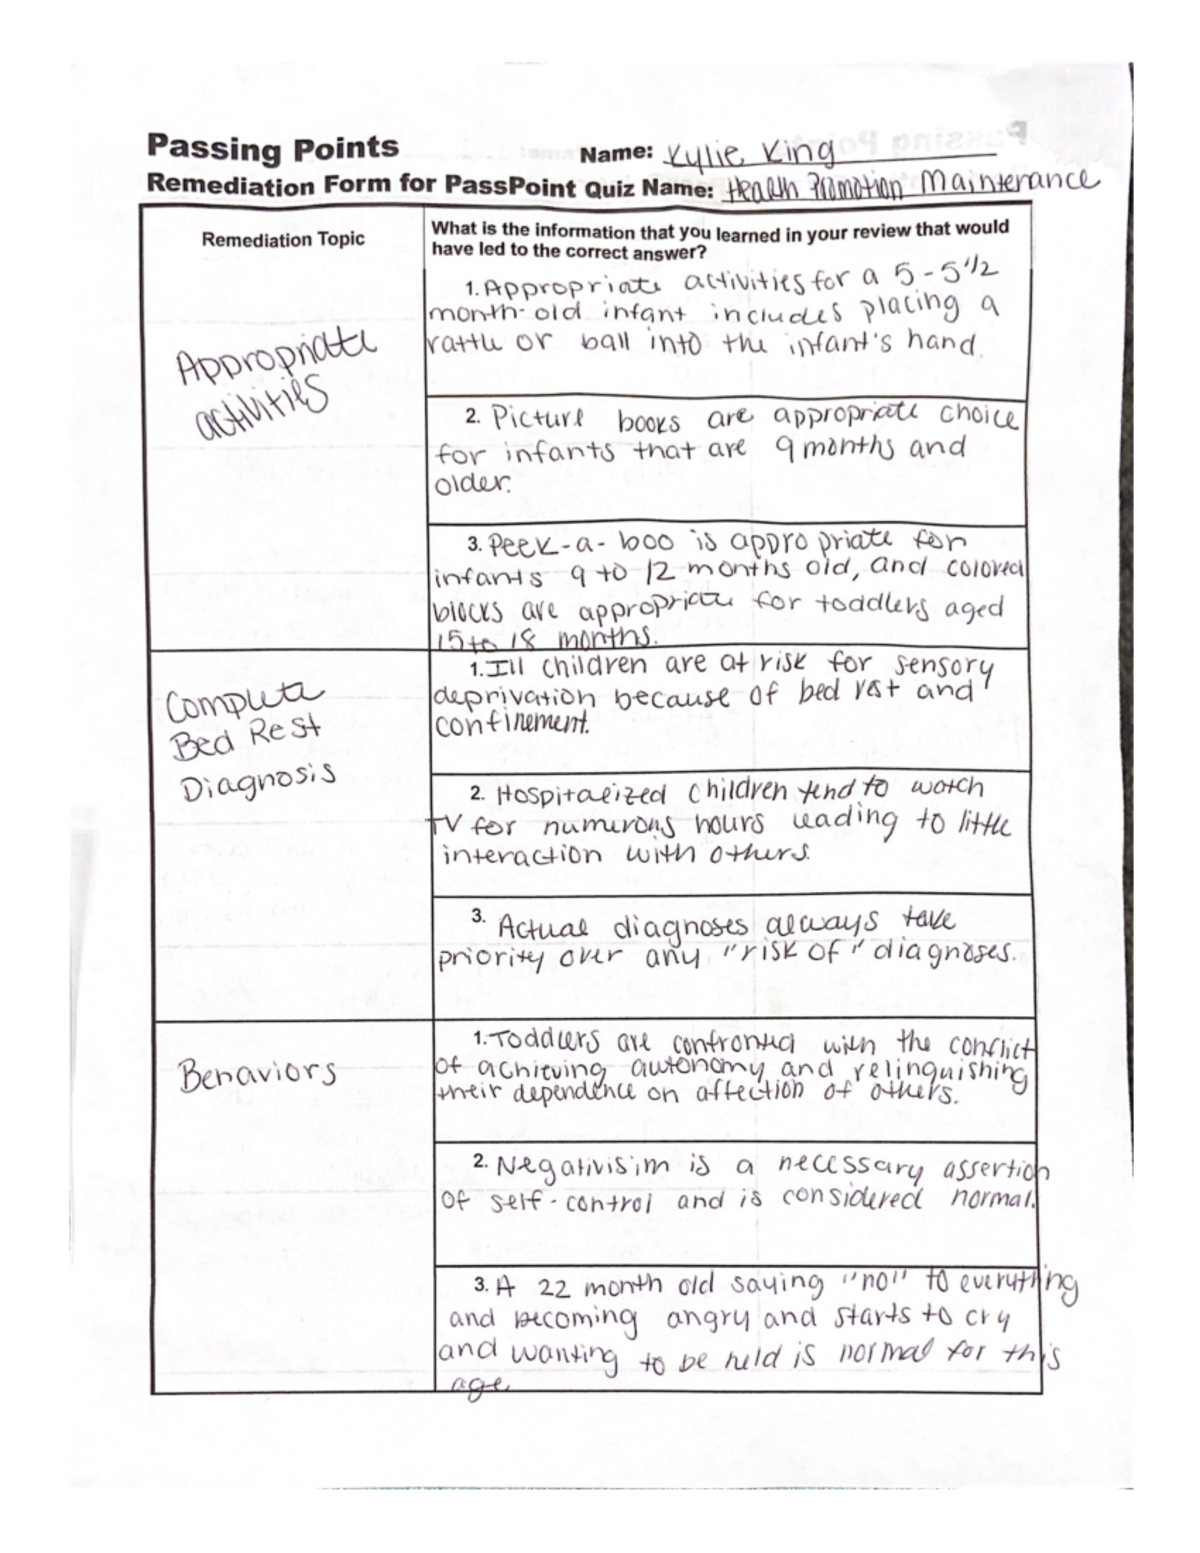 Passing Points
Name: Kylie King
Remediation Form for PassPoint Quiz Name: Health Promotion Maintenance
Remediation Topic
What is the information that you learned in your review that would
have led to the correct answer?
Appropriate
activities
1. Appropriate activities for a 5-5 1/2
month-old infant includes placing a
rattle or ball into the infant's hand.
2. Picture books are appropriate choice
for infants that are 9 months and
older.
3. Peek-a-boo is appropriate for
infants 9 to 12 months old, and colored
blocks are appropriate for toddlers aged
15 to 18 months.
Complete
Bed Rest
Diagnosis
1. Ill children are at risk for sensory
deprivation because of bed rest and
confinement.
2. Hospitalized children tend to watch
TV for numerous hours leading to little
interaction with others.
3. Actual diagnoses always take
priority over any "risk of" diagnoses.
Behaviors
1. Toddlers are confronted with the conflict
of achieving autonomy and relinquishing
their dependence on affection of others.
2. Negativisim is a necessary assertion
of self-control and is considered normal.
3. A 22 month old saying "no" to everything
and becoming angry and starts to cry
and wanting to be held is normal for this
age.